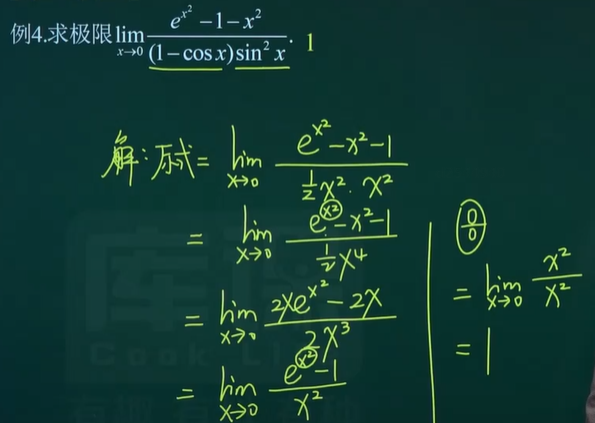 例4.求极限 lim x→0 (e^{x²} −1−x²)/((1−cos x)sin² x). 1
解:原式= lim x→0 (e^{x²}−x²−1)/(½x²·x²)
= lim x→0 (e^{x²}−x²−1)/(½x⁴)
= lim x→0 (2xe^{x²}−2x)/(2x³)
= lim x→0 (e^{x²}−1)/x²
0/0
= lim x→0 x²/x²
= 1